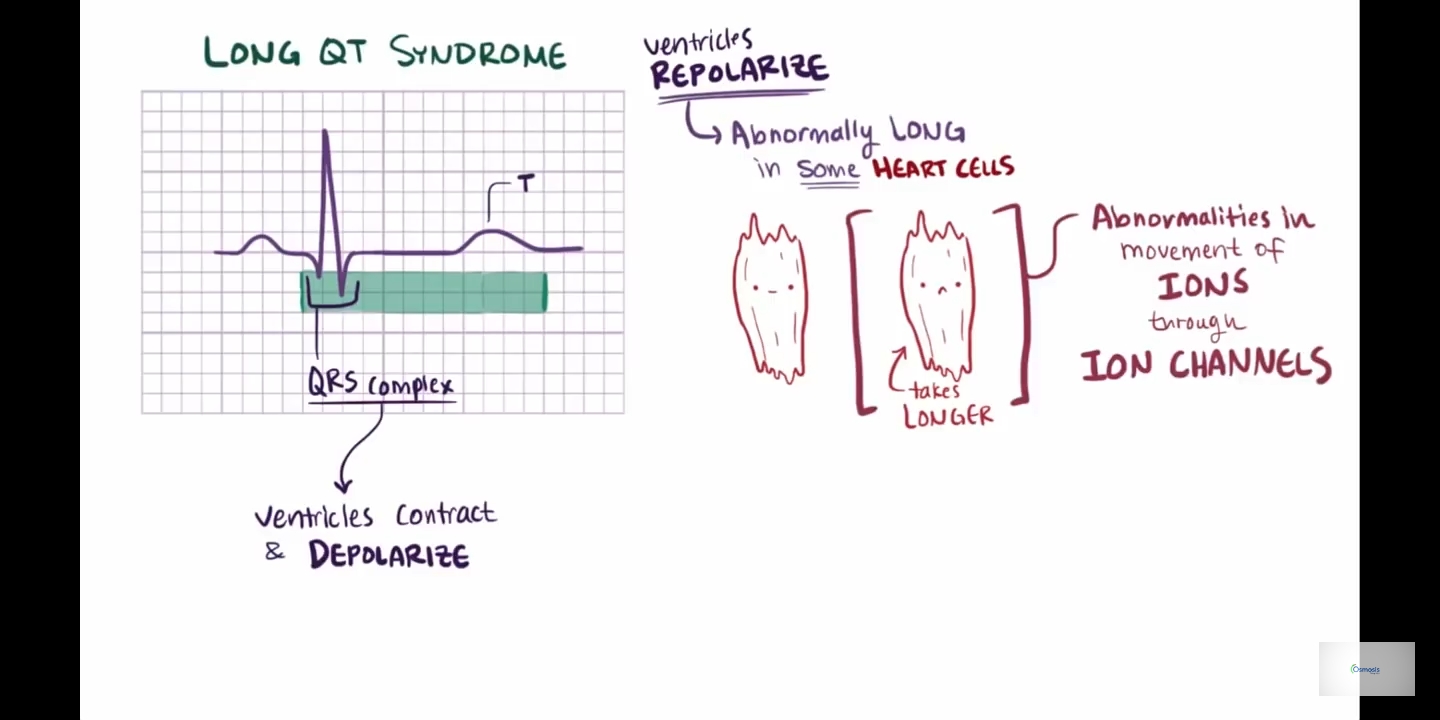 LONG QT SYNDROME
T
QRS complex
ventricles contract
& DEPOLARIZE
ventricles
REPOLARIZE
Abnormally LONG
in some HEART CELLS
takes
LONGER
Abnormalities in
movement of
IONS
through
ION CHANNELS
Osmosis